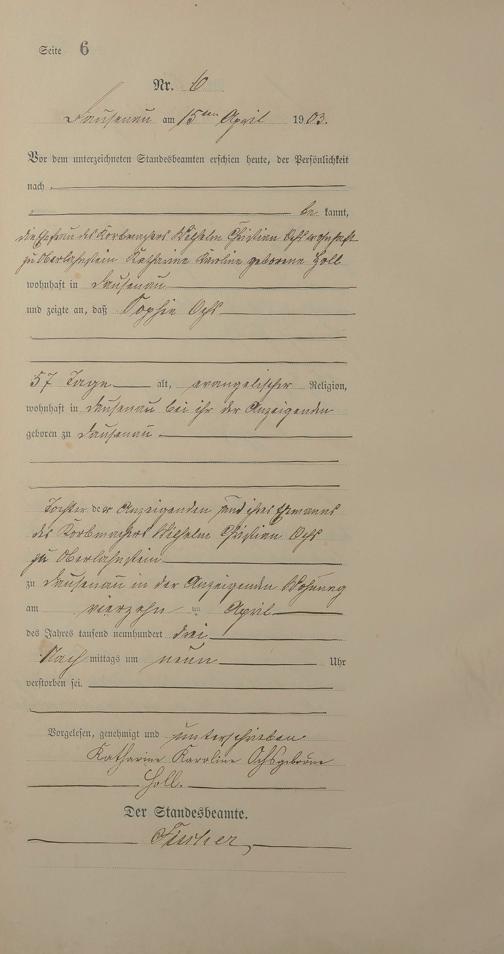 Seite 6
Nr. 6
Dausenau am 15ten April 1903.
Vor dem unterzeichneten Standesbeamten erschien heute, der Persönlichkeit
nach
be kannt,
die Ehefrau des Korbmachers Wilhelm Christian Ochs wohnhaft
zu Oberlahnstein Katharine Karoline geborene Holl
wohnhaft in Dausenau
und zeigte an, daß Sophie Ochs
57 Tage alt, evangelischer Religion,
wohnhaft in Dausenau bei ihr der Anzeigenden
geboren zu Dausenau
Tochter der Anzeigenden und ihres Ehemanns
des Korbmachers Wilhelm Christian Ochs
zu Oberlahnstein
zu Dausenau in der Anzeigenden Wohnung
am vierzehn ten April
des Jahres tausend neunhundert drei
Nach mittags um neun Uhr
verstorben sei.
Vorgelesen, genehmigt und unterschrieben
Katharine Karoline Ochs geborene
Holl.
Der Standesbeamte.
Fischer